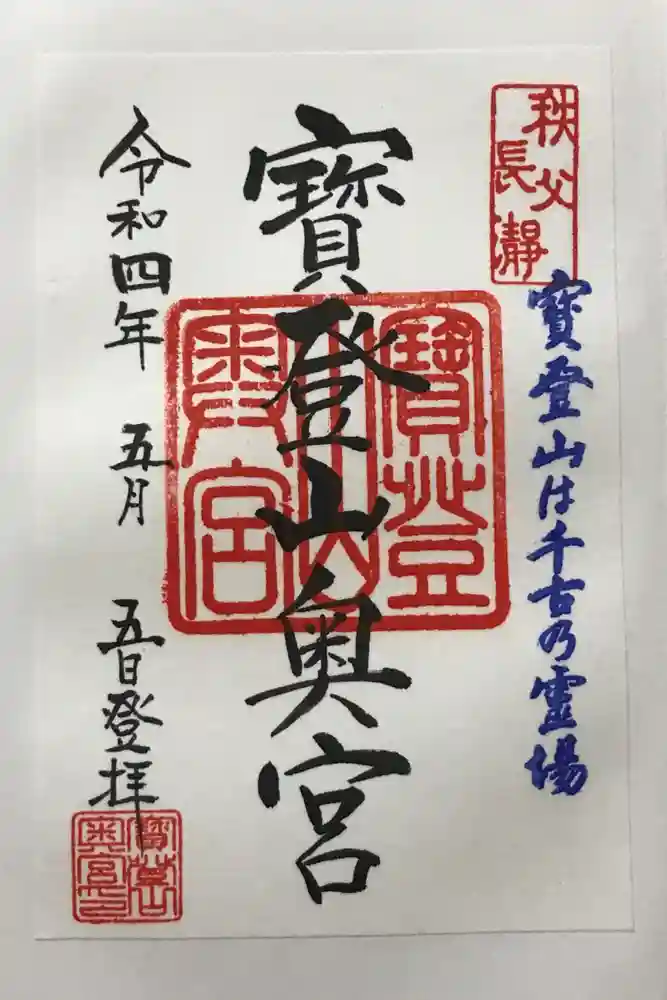 秩父
長瀞
寳登山は千古乃霊場
寳登山奥宮
寳登
山
奥宮
令和四年 五月 五日登拝
寳登山
奥宮之印